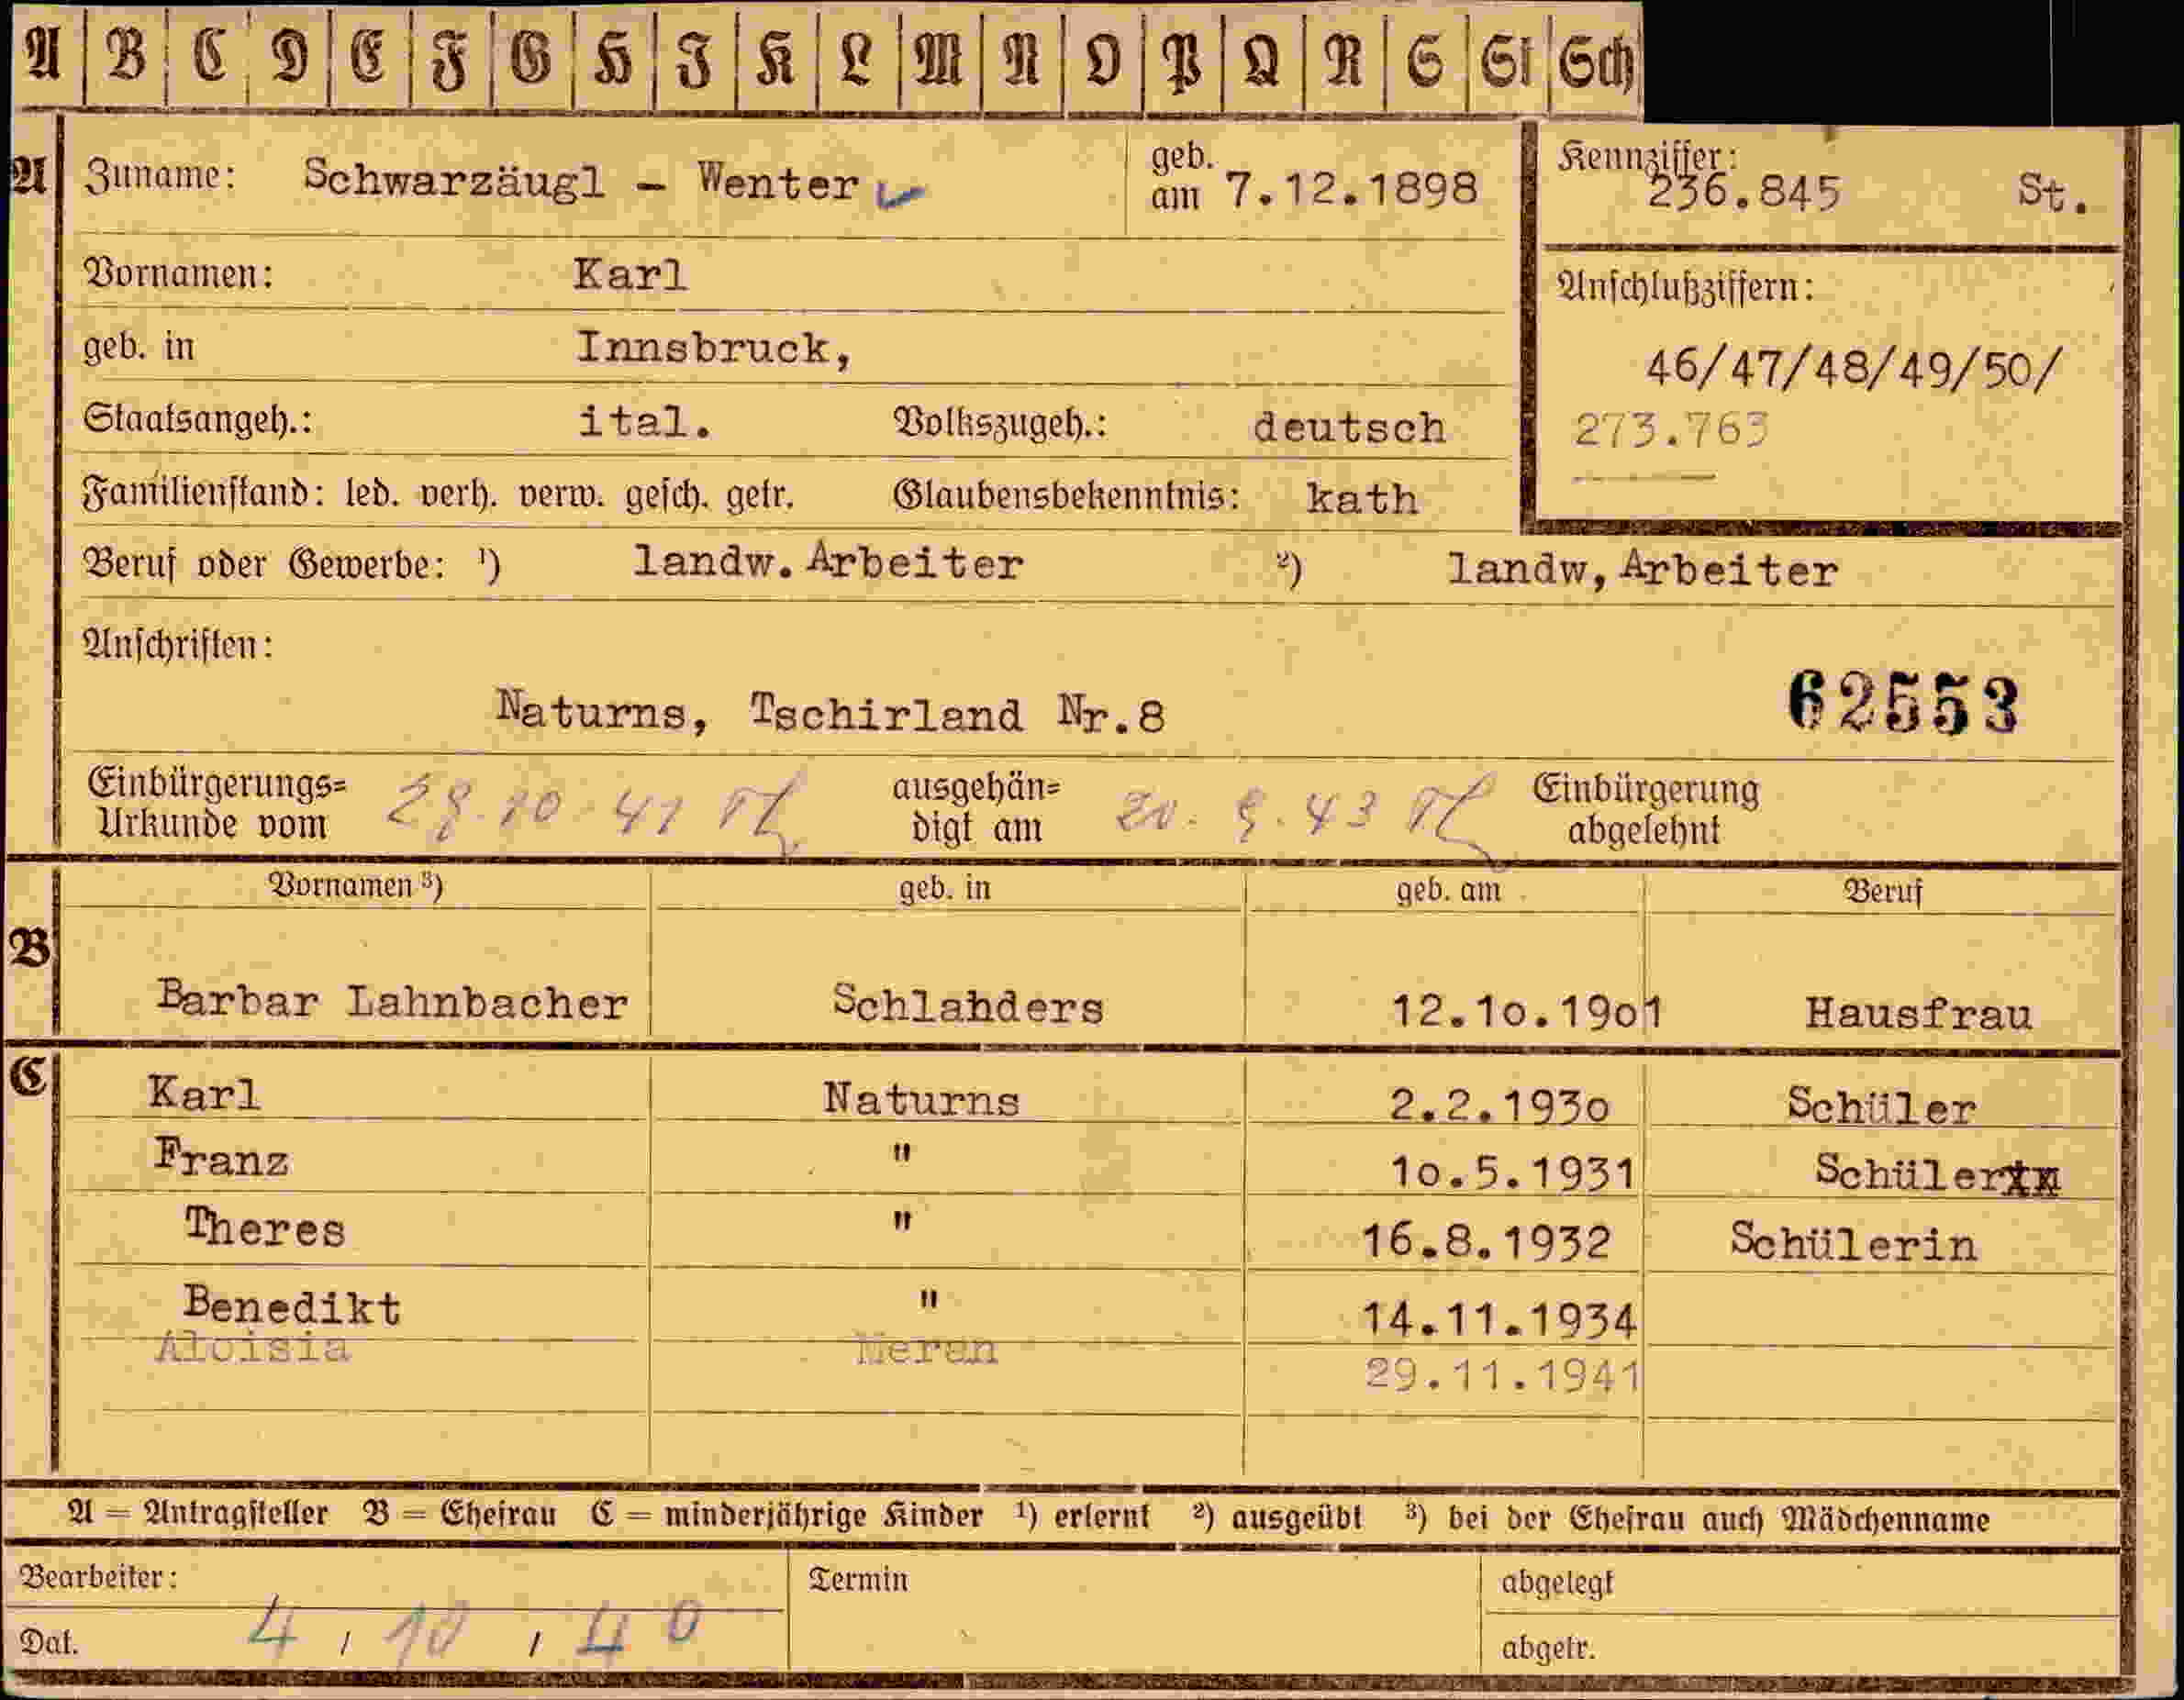 A B C D E F G H I K L M N O P Q R S St Sch
A Zuname: Schwarzäugl - Wenter geb. am 7.12.1898 Kennziffer: 236.845 St.
Vornamen: Karl
Anschlußziffern:
geb. in Innsbruck,
46/47/48/49/50/
Staatsangeh.: ital. Volkszugeh.: deutsch
273.763
Familienstand: led. verh. verw. gesch. getr. Glaubensbekenntnis: kath
Beruf oder Gewerbe: ¹) landw. Arbeiter ²) landw, Arbeiter
Anschriften:
Naturns, Tschirland Nr.8 62553
Einbürgerungs= ausgehän= Einbürgerung
Urkunde vom 28.10.41 digt am 20. 9. 43 abgelehnt
Vornamen ³) geb. in geb. am Beruf
B
Barbar Lahnbacher Schlahders 12.1o.19o1 Hausfrau
C Karl Naturns 2.2.193o Schüler
Franz " 1o.5.1931 Schüler
Theres " 16.8.1932 Schülerin
Benedikt " 14.11.1934
Aloisia Meran 29.11.1941
A = Antragsteller B = Ehefrau C = minderjährige Kinder ¹) erlernt ²) ausgeübt ³) bei der Ehefrau auch Mädchenname
Bearbeiter: Termin abgelegt
Dat. 4 / 10 / 40 abgetr.